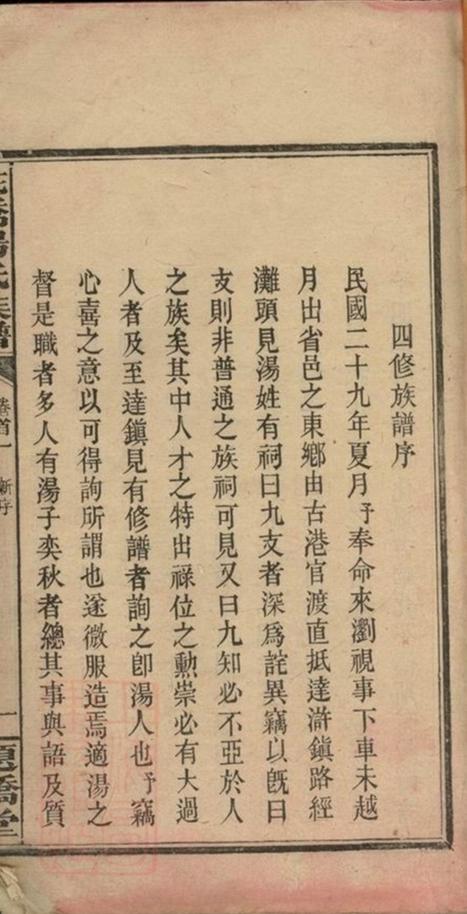 四修族譜序
民國二十九年夏月予奉命來瀏視事下車未越
月出省邑之東鄉由古港官渡直抵達滸鎮路經
灘頭見湯姓有祠曰九支者深爲詫異竊以旣曰
支則非普通之族祠可見又曰九知必不亞於人
之族矣其中人才之特出祿位之勳崇必有大過
人者及至達鎭見有修譜者詢之卽湯人也予竊
心喜之意以可得詢所謂也遂微服造焉適湯之
督是職者多人有湯子奕秋者總其事與語及質
湯氏族譜
卷首一
新序
一